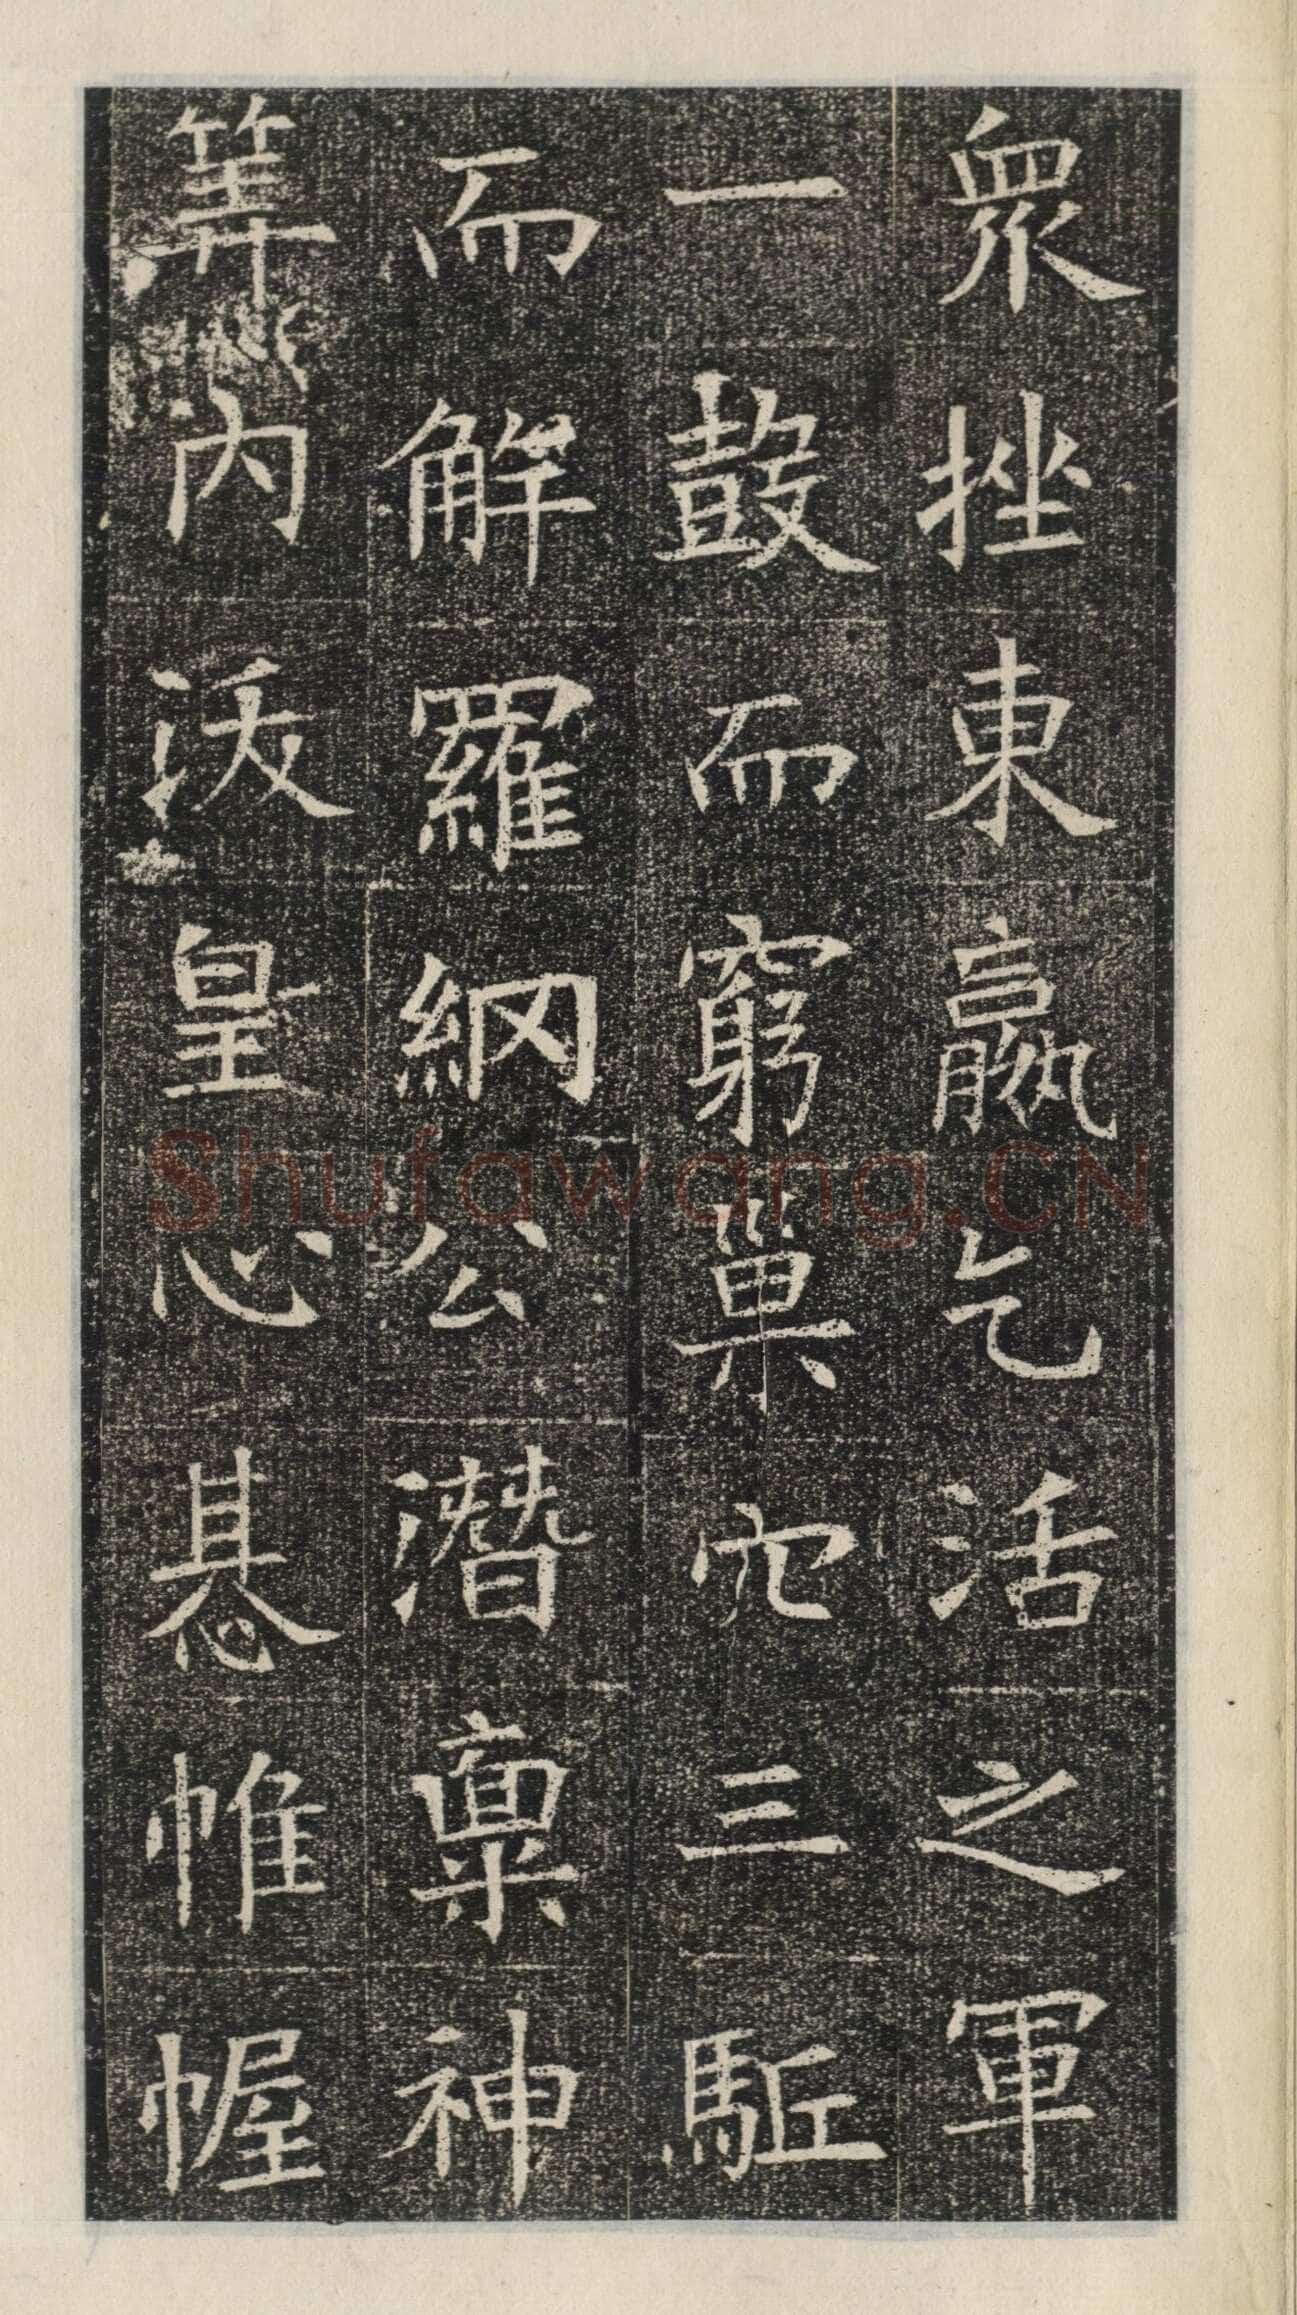 眾挫東嬴乞活之軍
一鼓而窮巢穴三駈
而解羅網公潛稟神
筭內沃皇心惎帷幄
Shufawang.CN